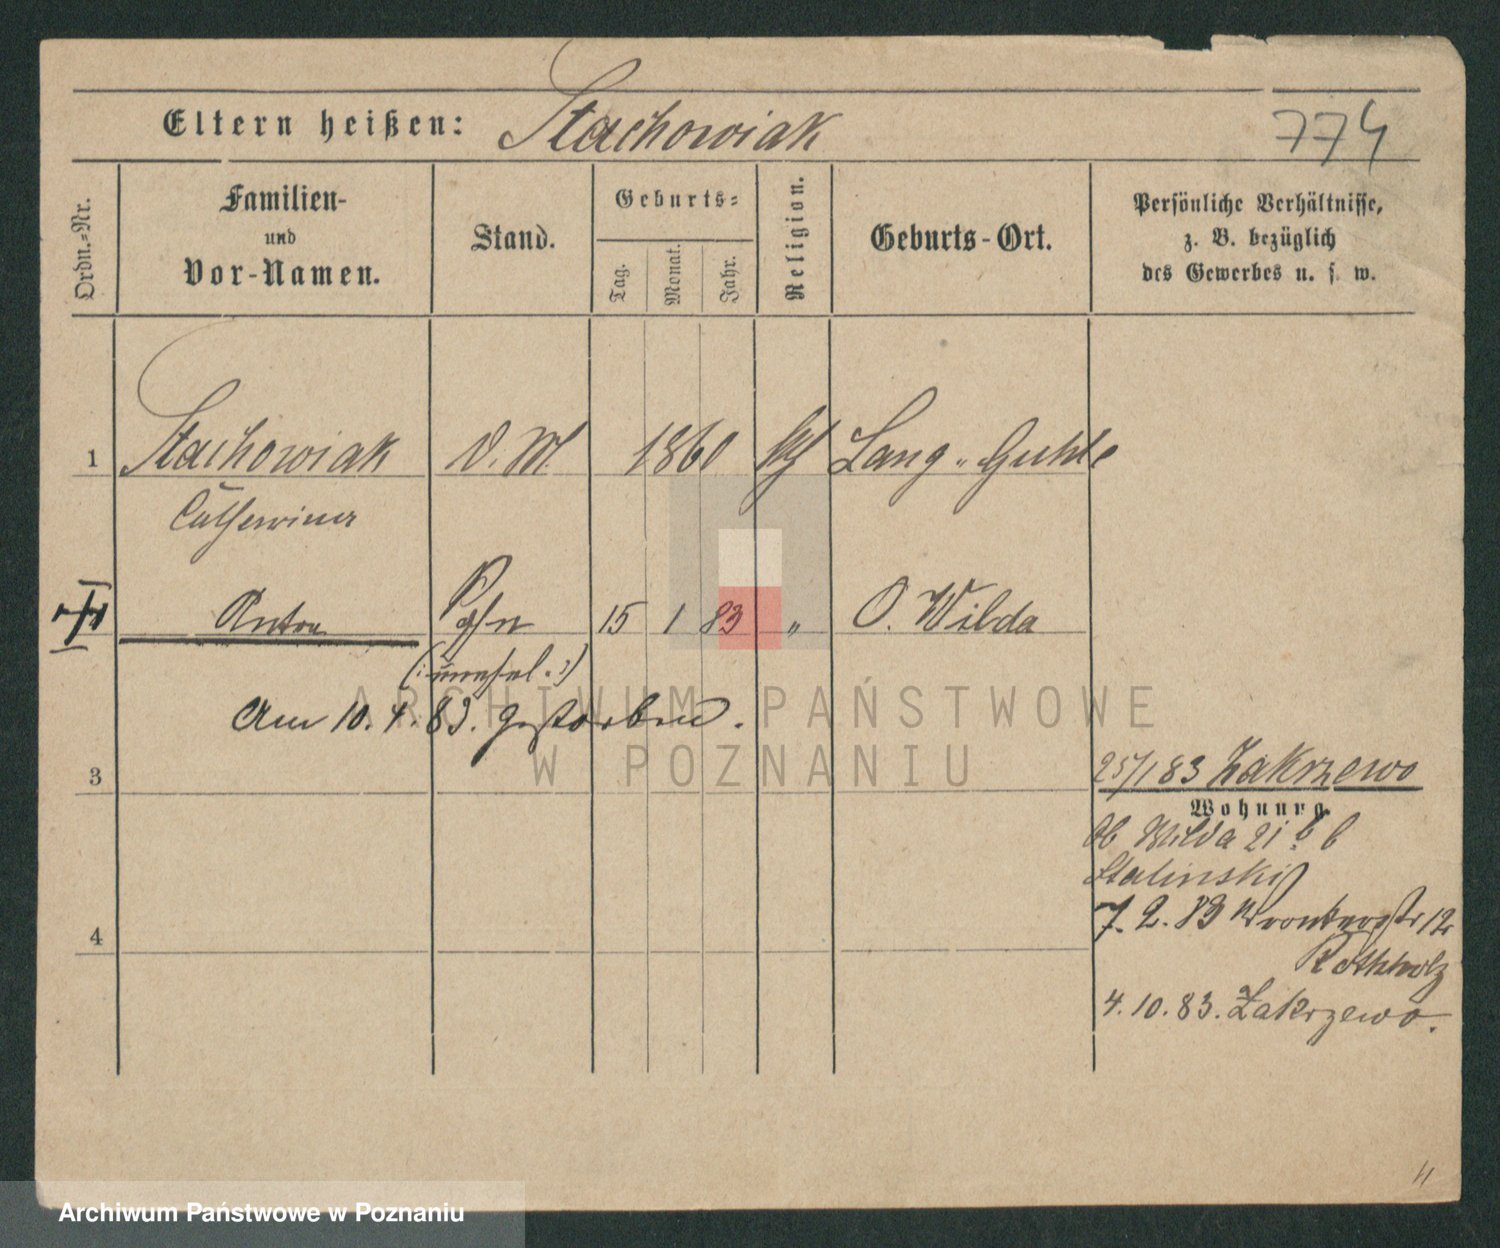 Eltern heißen: Stachowiak
774
Ordn.=Nr.
Familien-
und
Vor-Namen.
Stand.
Geburts=
Tag.
Monat.
Jahr.
Religion.
Geburts-Ort.
Persönliche Verhältnisse,
z. B. bezüglich
des Gewerbes u. s. w.
1 Stachowiak D. M. 1860 kf Lang-Guhle
Catherina
Anton 15 1 83 " O. Wilda
Am 10. 4. 83. gestorben.
3
25/1 83 Zakrzewo
Wohnung.
Ob Wilda 21 b b
Stalinski
7. 2. 83 Wronkerstr 12
Rothholz
4. 10. 83. Zakrzewo.
4
ARCHIWUM PAŃSTWOWE
W POZNANIU
Archiwum Państwowe w Poznaniu